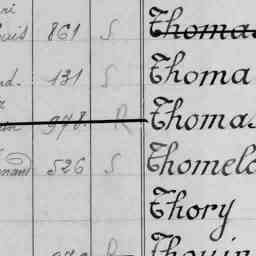 ri
ais 861 S Thomas
nd. 131 S Thoma
978 R Thomas
nant 526 S Thomela
Thory
Thouin